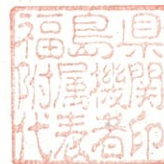 福島県
附属機関
代表者印